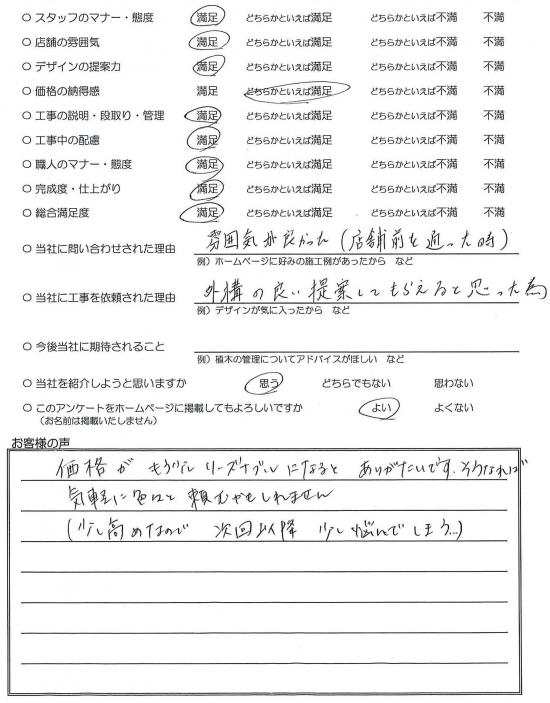 ○ スタッフのマナー・態度 満足 どちらかといえば満足 どちらかといえば不満 不満
○ 店舗の雰囲気 満足 どちらかといえば満足 どちらかといえば不満 不満
○ デザインの提案力 満足 どちらかといえば満足 どちらかといえば不満 不満
○ 価格の納得感 満足 どちらかといえば満足 どちらかといえば不満 不満
○ 工事の説明・段取り・管理 満足 どちらかといえば満足 どちらかといえば不満 不満
○ 工事中の配慮 満足 どちらかといえば満足 どちらかといえば不満 不満
○ 職人のマナー・態度 満足 どちらかといえば満足 どちらかといえば不満 不満
○ 完成度・仕上がり 満足 どちらかといえば満足 どちらかといえば不満 不満
○ 総合満足度 満足 どちらかといえば満足 どちらかといえば不満 不満
○ 当社に問い合わせされた理由 雰囲気が良かった(店舗前を通った時)
例）ホームページに好みの施工例があったから など
○ 当社に工事を依頼された理由 外構の良い提案してもらえると思った為
例）デザインが気に入ったから など
○ 今後当社に期待されること
例）植木の管理についてアドバイスがほしい など
○ 当社を紹介しようと思いますか 思う どちらでもない 思わない
○ このアンケートをホームページに掲載してもよろしいですか よい よくない
（お名前は掲載いたしません）
お客様の声
価格が もう少しリーズナブルになると ありがたいです。そうなれば
気軽に色々と頼むかもしれません
(少し高めなので 次回以降 少し悩んでしまう…)